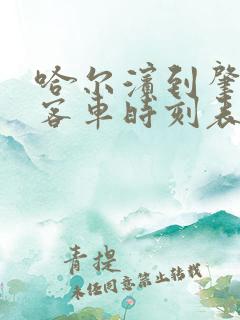 哈尔滨到肇
客车时刻表
青提
未经同意禁止转载